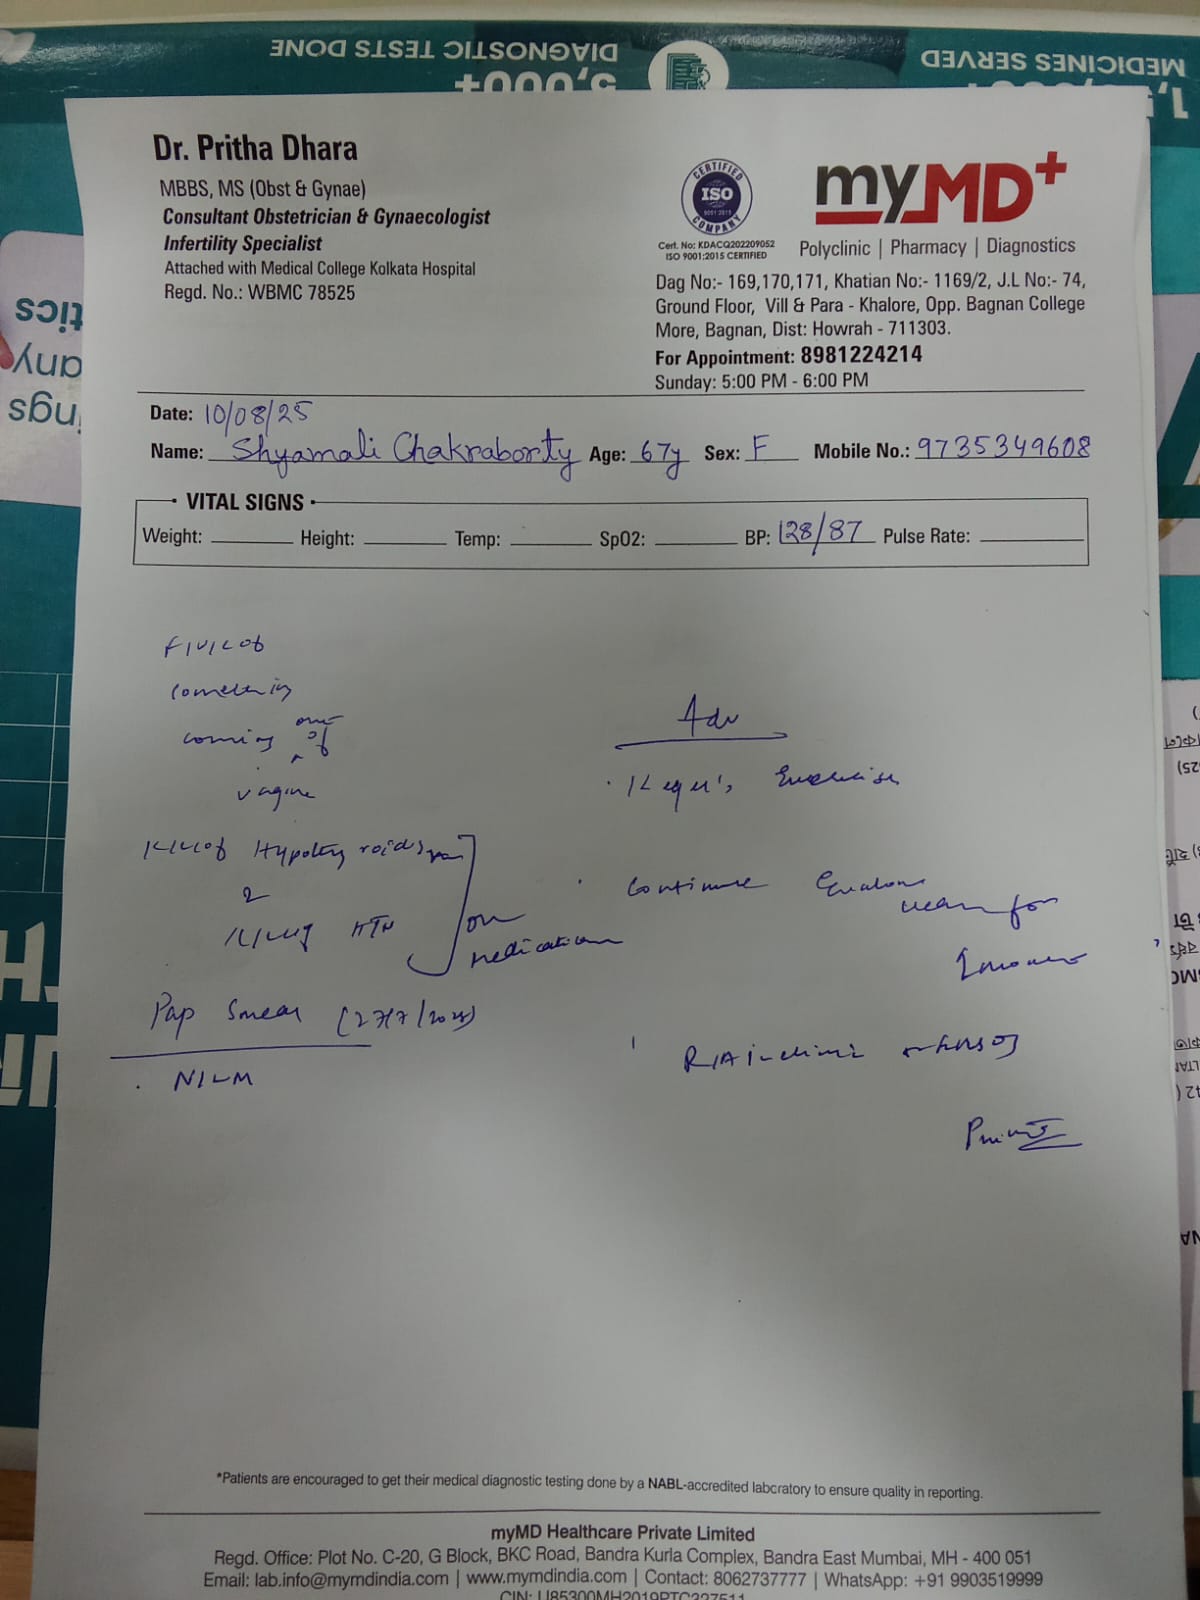 DIAGNOSTIC TESTS DONE
5,000+
MEDICINES SERVED
Dr. Pritha Dhara
MBBS, MS (Obst & Gynae)
Consultant Obstetrician & Gynaecologist
Infertility Specialist
Attached with Medical College Kolkata Hospital
Regd. No.: WBMC 78525
CERTIFIED
ISO
9001:2015
COMPANY
Cert. No: KDACQ202209052
ISO 9001:2015 CERTIFIED
myMD+
Polyclinic | Pharmacy | Diagnostics
Dag No:- 169,170,171, Khatian No:- 1169/2, J.L No:- 74,
Ground Floor, Vill & Para - Khalore, Opp. Bagnan College
More, Bagnan, Dist: Howrah - 711303.
For Appointment: 8981224214
Sunday: 5:00 PM - 6:00 PM
Date: 10/08/25
Name: Shyamali Chakraborty Age: 67y Sex: F Mobile No.: 9735349608
VITAL SIGNS
Weight: Height: Temp: SpO2: BP: 128/87 Pulse Rate:
something
coming out of
vagina
Hypothyroidism
HTN
on
medication
Pap Smear
NILM
Adv
Kegel's Exercise
Continue
cream for
*Patients are encouraged to get their medical diagnostic testing done by a NABL-accredited laboratory to ensure quality in reporting.
myMD Healthcare Private Limited
Regd. Office: Plot No. C-20, G Block, BKC Road, Bandra Kurla Complex, Bandra East Mumbai, MH - 400 051
Email: lab.info@mymdindia.com | www.mymdindia.com | Contact: 8062737777 | WhatsApp: +91 9903519999
CIN: U85300MH2019PTC327511